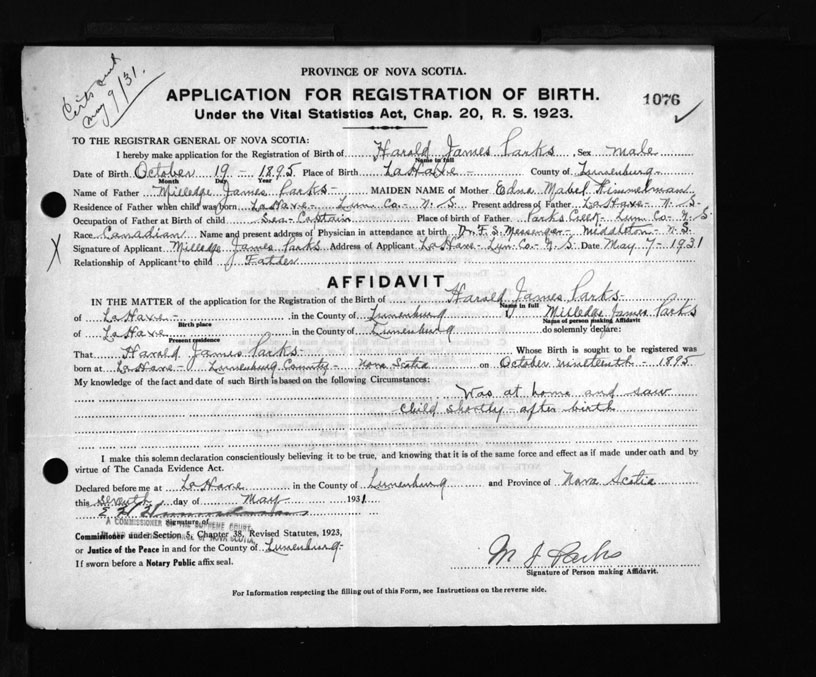 Certs sent
May 9/31.
PROVINCE OF NOVA SCOTIA.
APPLICATION FOR REGISTRATION OF BIRTH.
1076
Under the Vital Statistics Act, Chap. 20, R. S. 1923.
TO THE REGISTRAR GENERAL OF NOVA SCOTIA:
I hereby make application for the Registration of Birth of Harald James Parks Sex male
Name in full
Date of Birth October 19 - 1895 Place of Birth LaHave - County of Lunenburg -
Month Day Year
Name of Father Milledge James Parks - MAIDEN NAME of Mother Edna Mabel Himmelman
Residence of Father when child was born LaHave - Lun. Co - N. S. Present address of Father LaHave - N. S
Occupation of Father at Birth of child Sea - Captain Place of birth of Father Parks Creek - Lun Co - N. S
Race Canadian Name and present address of Physician in attendance at birth Dr. F. S. Messenger - Middleton - N. S.
X Signature of Applicant Milledge James Parks Address of Applicant LaHave - Lun. Co - N. S Date May - 7 - 1931
Relationship of Applicant to child Father
AFFIDAVIT
IN THE MATTER of the application for the Registration of the Birth of Harald James Parks -
Name in full
of LaHave - in the County of Lunenburg I Milledge James Parks
Birth place Name of person making Affidavit
of LaHave - in the County of Lunenburg do solemnly declare:
Present residence
That Harald James Parks - Whose Birth is sought to be registered was
born at LaHave - Lunenburg County - Nova Scotia on October nineteenth - 1895
My knowledge of the fact and date of such Birth is based on the following Circumstances:
Was at home and saw
child shortly - after birth
I make this solemn declaration conscientiously believing it to be true, and knowing that it is of the same force and effect as if made under oath and by
virtue of The Canada Evidence Act.
Declared before me at LaHave in the County of Lunenburg and Province of Nova Scotia
this seventh day of May 1931
A COMMISSIONER OF THE SUPREME COURT
Signature of
Commissioner under Section 5, Chapter 38, Revised Statutes, 1923,
OF NOVA SCOTIA
or Justice of the Peace in and for the County of Lunenburg -
If sworn before a Notary Public affix seal.
M J Parks
Signature of Person making Affidavit.
For Information respecting the filling out of this Form, see Instructions on the reverse side.